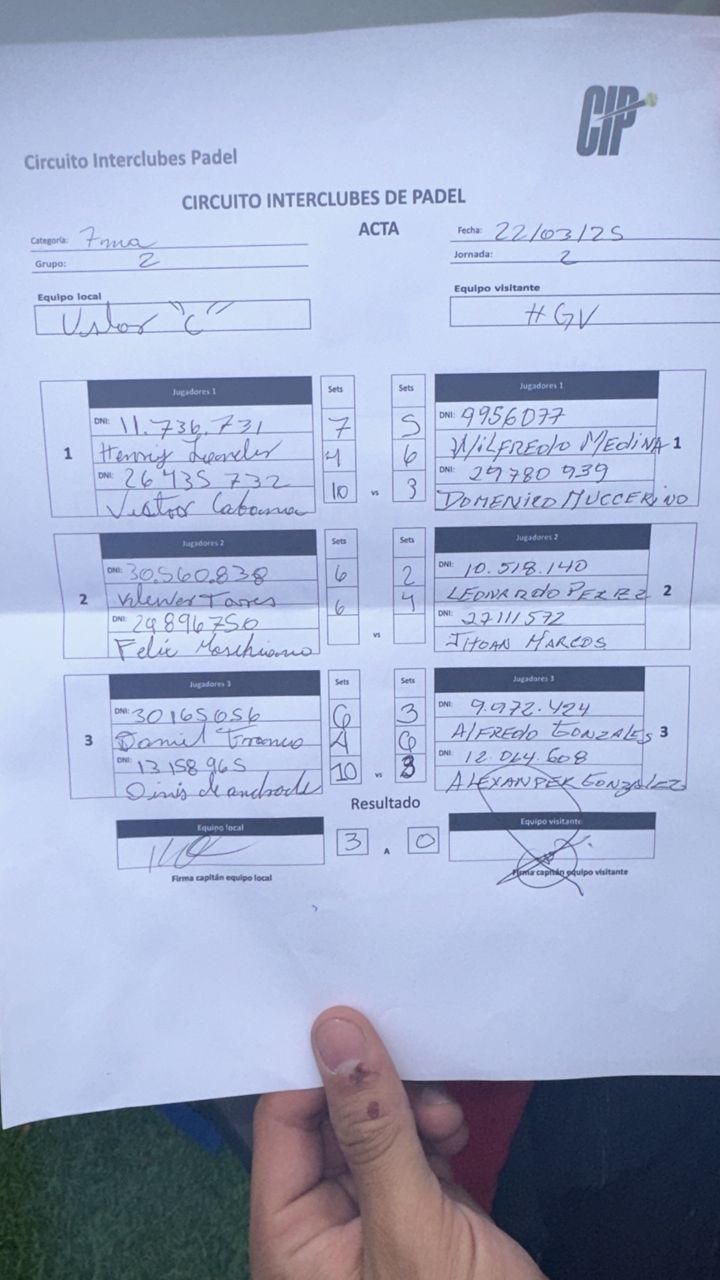 CIP
Circuito Interclubes Padel
CIRCUITO INTERCLUBES DE PADEL
ACTA
Categoría: 7ma
Grupo: 2
Fecha: 22/03/25
Jornada: 2
Equipo local
"C"
Equipo visitante
HGV
Jugadores 1 Sets Sets Jugadores 1
DNI: 11.736.731 7 5 DNI: 9956077
1 Henry 4 6 WILFREDO MEDINA 1
DNI: 26435732 10 vs 3 DNI: 29780939
DOMENICO MUCCERINO
Jugadores 2 Sets Sets Jugadores 2
DNI: 30.560.838 6 2 DNI: 10.518.140
2 6 4 LEONARDO PEREZ 2
DNI: 29896750 vs DNI: 27111572
Felix JHOAN MARCOS
Jugadores 3 Sets Sets Jugadores 3
DNI: 30165056 6 3 DNI: 9.972.424
3 Daniel Franco 4 6 ALFREDO GONZALES 3
DNI: 13158965 10 vs 8 DNI: 12.064.608
Dinis de andrade ALEXANDER GONZALEZ
Resultado
Equipo local 3 A 0 Equipo visitante
Firma capitán equipo local
Firma capitán equipo visitante